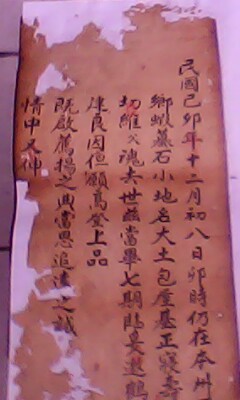 民國己卯年十二月初八日卯時仍在本州
鄉墓石小地名大土包座基正寢壽
切維父魂去世茲當舉七期臨晏邀鶴
建良因但願高登上品
既啟薦揚之典當思追遠之誠
情中又伸